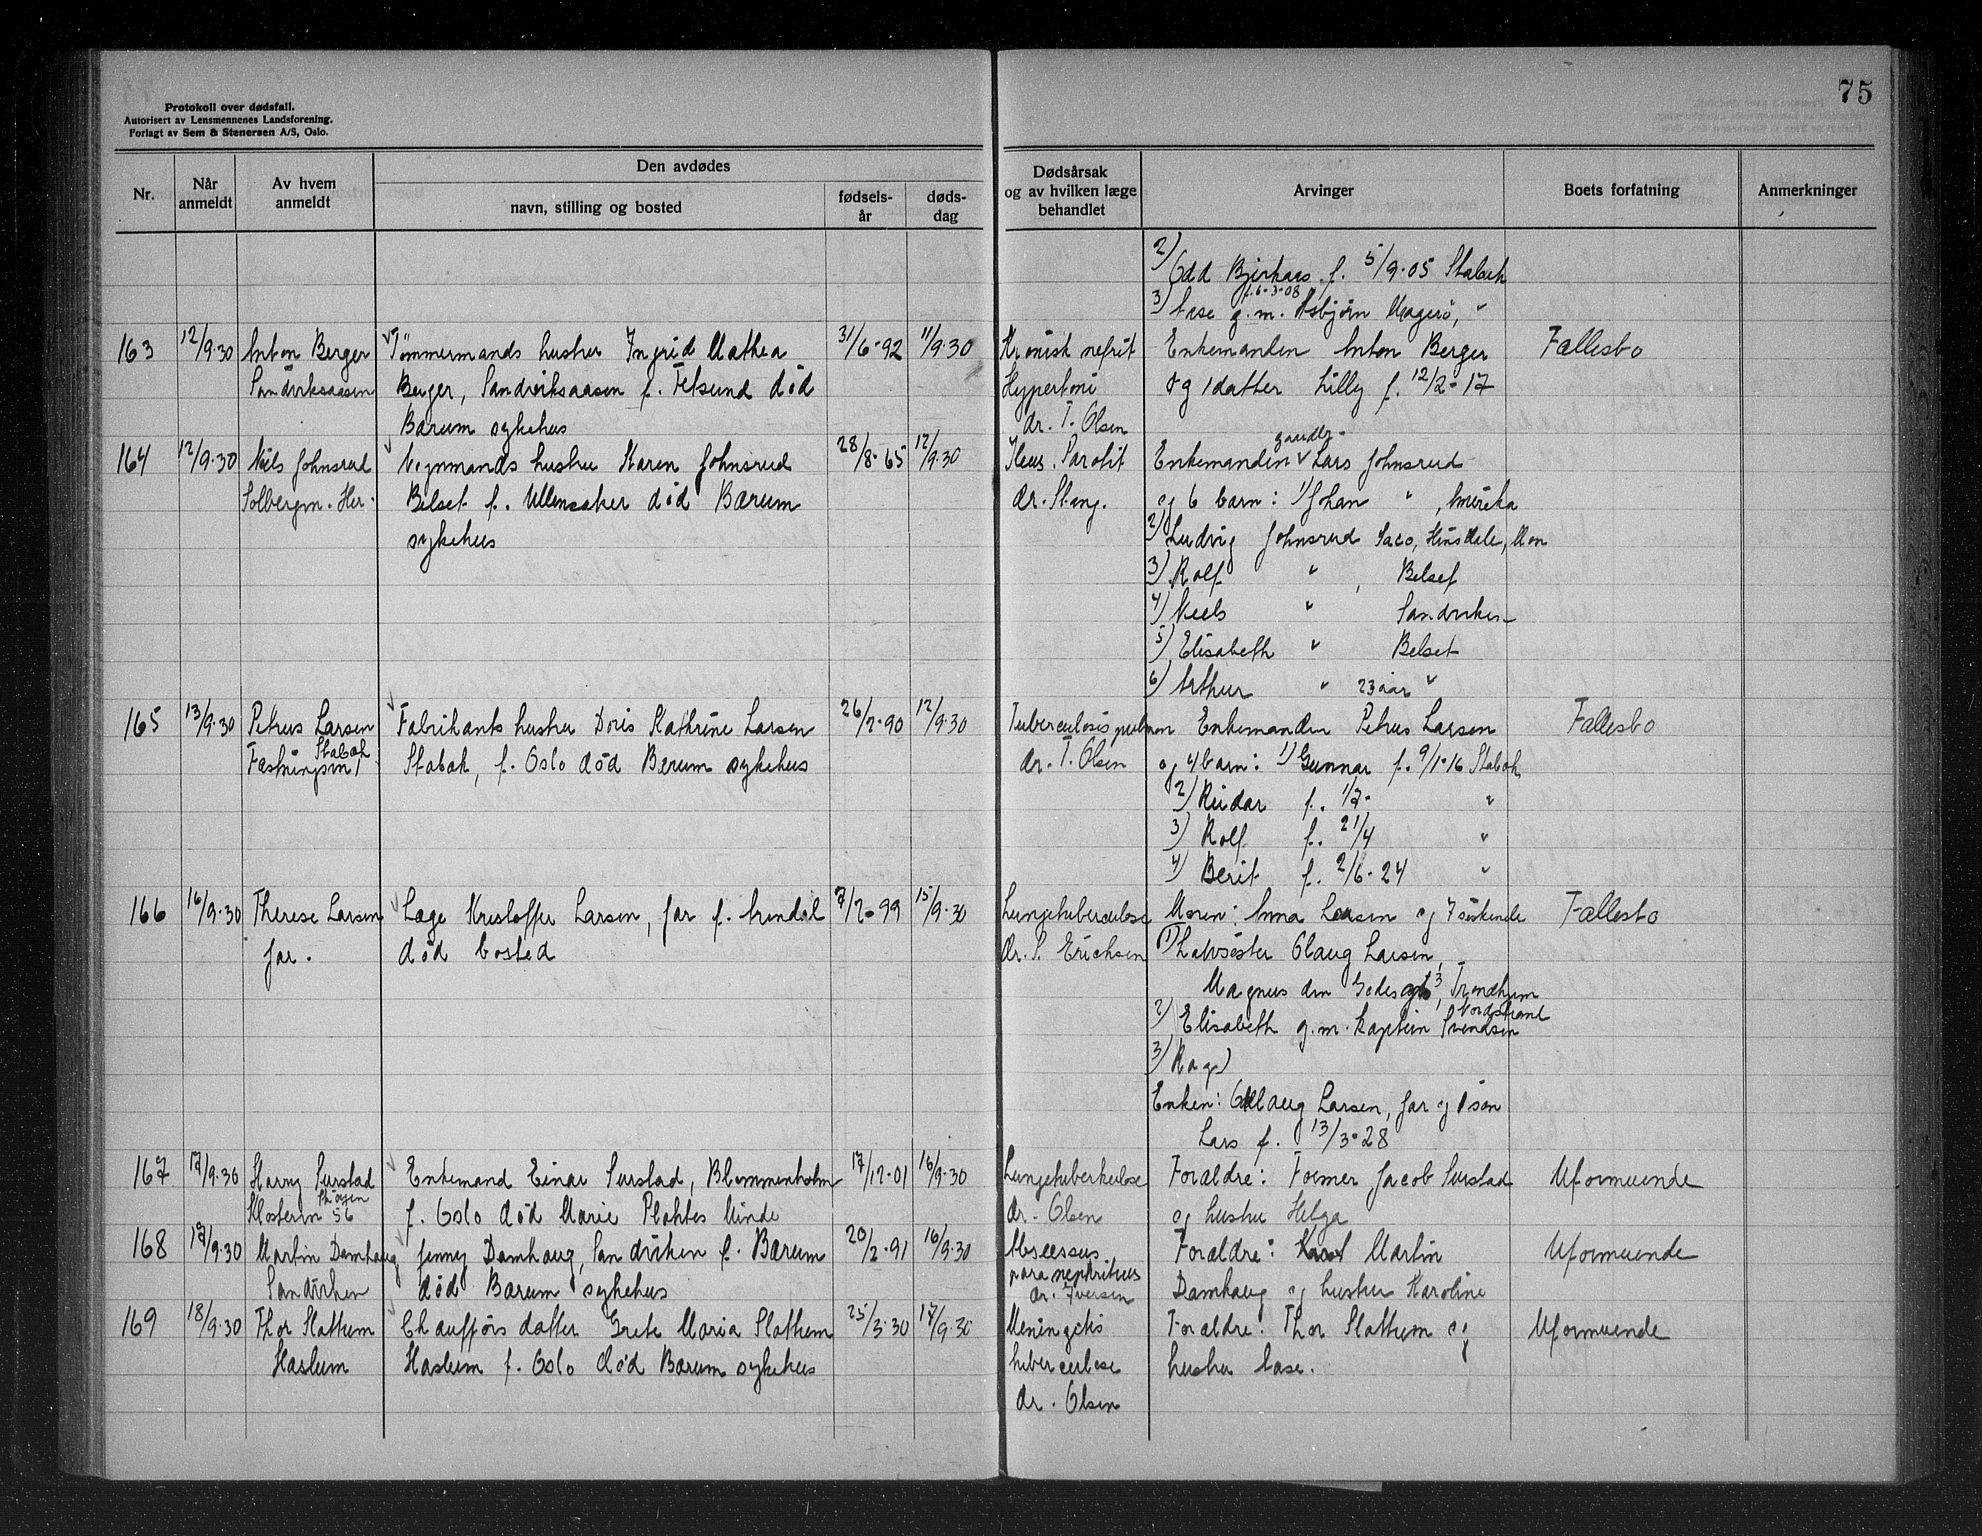 75
Protokoll over dødsfall.
Autorisert av Lensmennenes Landsforening.
Forlagt av Sem & Stenersen A/S, Oslo.
Nr.
Når anmeldt
Av hvem anmeldt
Den avdødes
navn, stilling og bosted
fødsels-år
døds-dag
Dødsårsak og av hvilken læge behandlet
Arvinger
Boets forfatning
Anmerkninger
2) Odd Bjerkaas f. 5/9-05 Stabæk
f. 6-3-08
3) Aase g.m. Asbjörn Magerö, "
163 12/9.30 Anton Berger Tömmermands hustru Ingrid Mathea 31/6-92 11/9.30 Kronisk nefrit Enkemanden Anton Berger Fællesbo
Sandviksaasen Berger, Sandviksaasen f. Fetsund død Hypertoni og 1 datter Lilly f. 12/2-17
Bærum sykehus dr. T. Olsen
164 12/9.30 Niels Johnsrud Hustru Karen Johnsrud 28/8-65 12/9.30 Ileus. Parotit Enkemanden gaardbr. Lars Johnsrud
Solbergm. Her. Belset f. Ullensaker død Bærum dr. Stang. og 6 barn: 1) Johan " , Amerika
sykehus 2) Ludvig Johnsrud Saco, Hinsdale, Mon
3) Rolf " , Belset
4) Niels " Sandviken
5) Elisabeth " Belset
6) Arthur " 23 aar "
165 13/9.30 Petrus Larsen Fabrikants hustru Doris Kathrine Larsen 26/2-90 12/9.30 Tuberculosis pulmon Enkemanden Petrus Larsen Fællesbo
Fæstningsm 1 Stabæk Stabæk, f. Oslo død Bærum sykehus dr. T. Olsen og 4 barn: 1) Gunnar f. 9/1-16 Stabæk
2) Reidar f. 1/7- "
3) Rolf f. 21/4 "
4) Berit f. 2/6-24 "
166 16/9.30 Therese Larsen Læge Kristoffer Larsen, Jar f. Arendal 7/2-99 15/9.30 Lungetuberculose Moren: Anna Larsen og 7 søskende Fællesbo
Jar. død bosted dr. S. Erichsen 1) Halvsøster Olaug Larsen,
Magnus den Godes gt 3, Trondhjem
2) Elisabeth g.m. kaptein Svendsen Nordstrand
3)
Enken: Olaug Larsen, Jar og 1 søn
Lars f. 13/3-28
167 17/9.30 Harry Surstad Enkemand Einar Surstad, Blommenholm 17/12-01 16/9.30 Lungetuberkulose Foræld­re: Former Jacob Surstad Uformuende
56 f. Oslo død Marie Plahtes Minde dr. Olsen og hustru Helga
168 17/9.30 Martin Damhaug Jenny Damhaug, Sandviken f. Bærum 20/2-91 16/9.30 Abscessus Forældre: Martin Uformuende
Sandviken død Bærum sykehus paranephriticus Damhaug og hustru Karoline
dr. Iversen
169 18/9.30 Thor Slattum Chaufförs datter Grete Maria Slattum 25/3-30 17/9.30 Meningitis Forældre: Thor Slattum og Uformuende
Haslum Haslum f. Oslo død Bærum sykehus tuberculose hustru Aase.
dr. Olsen